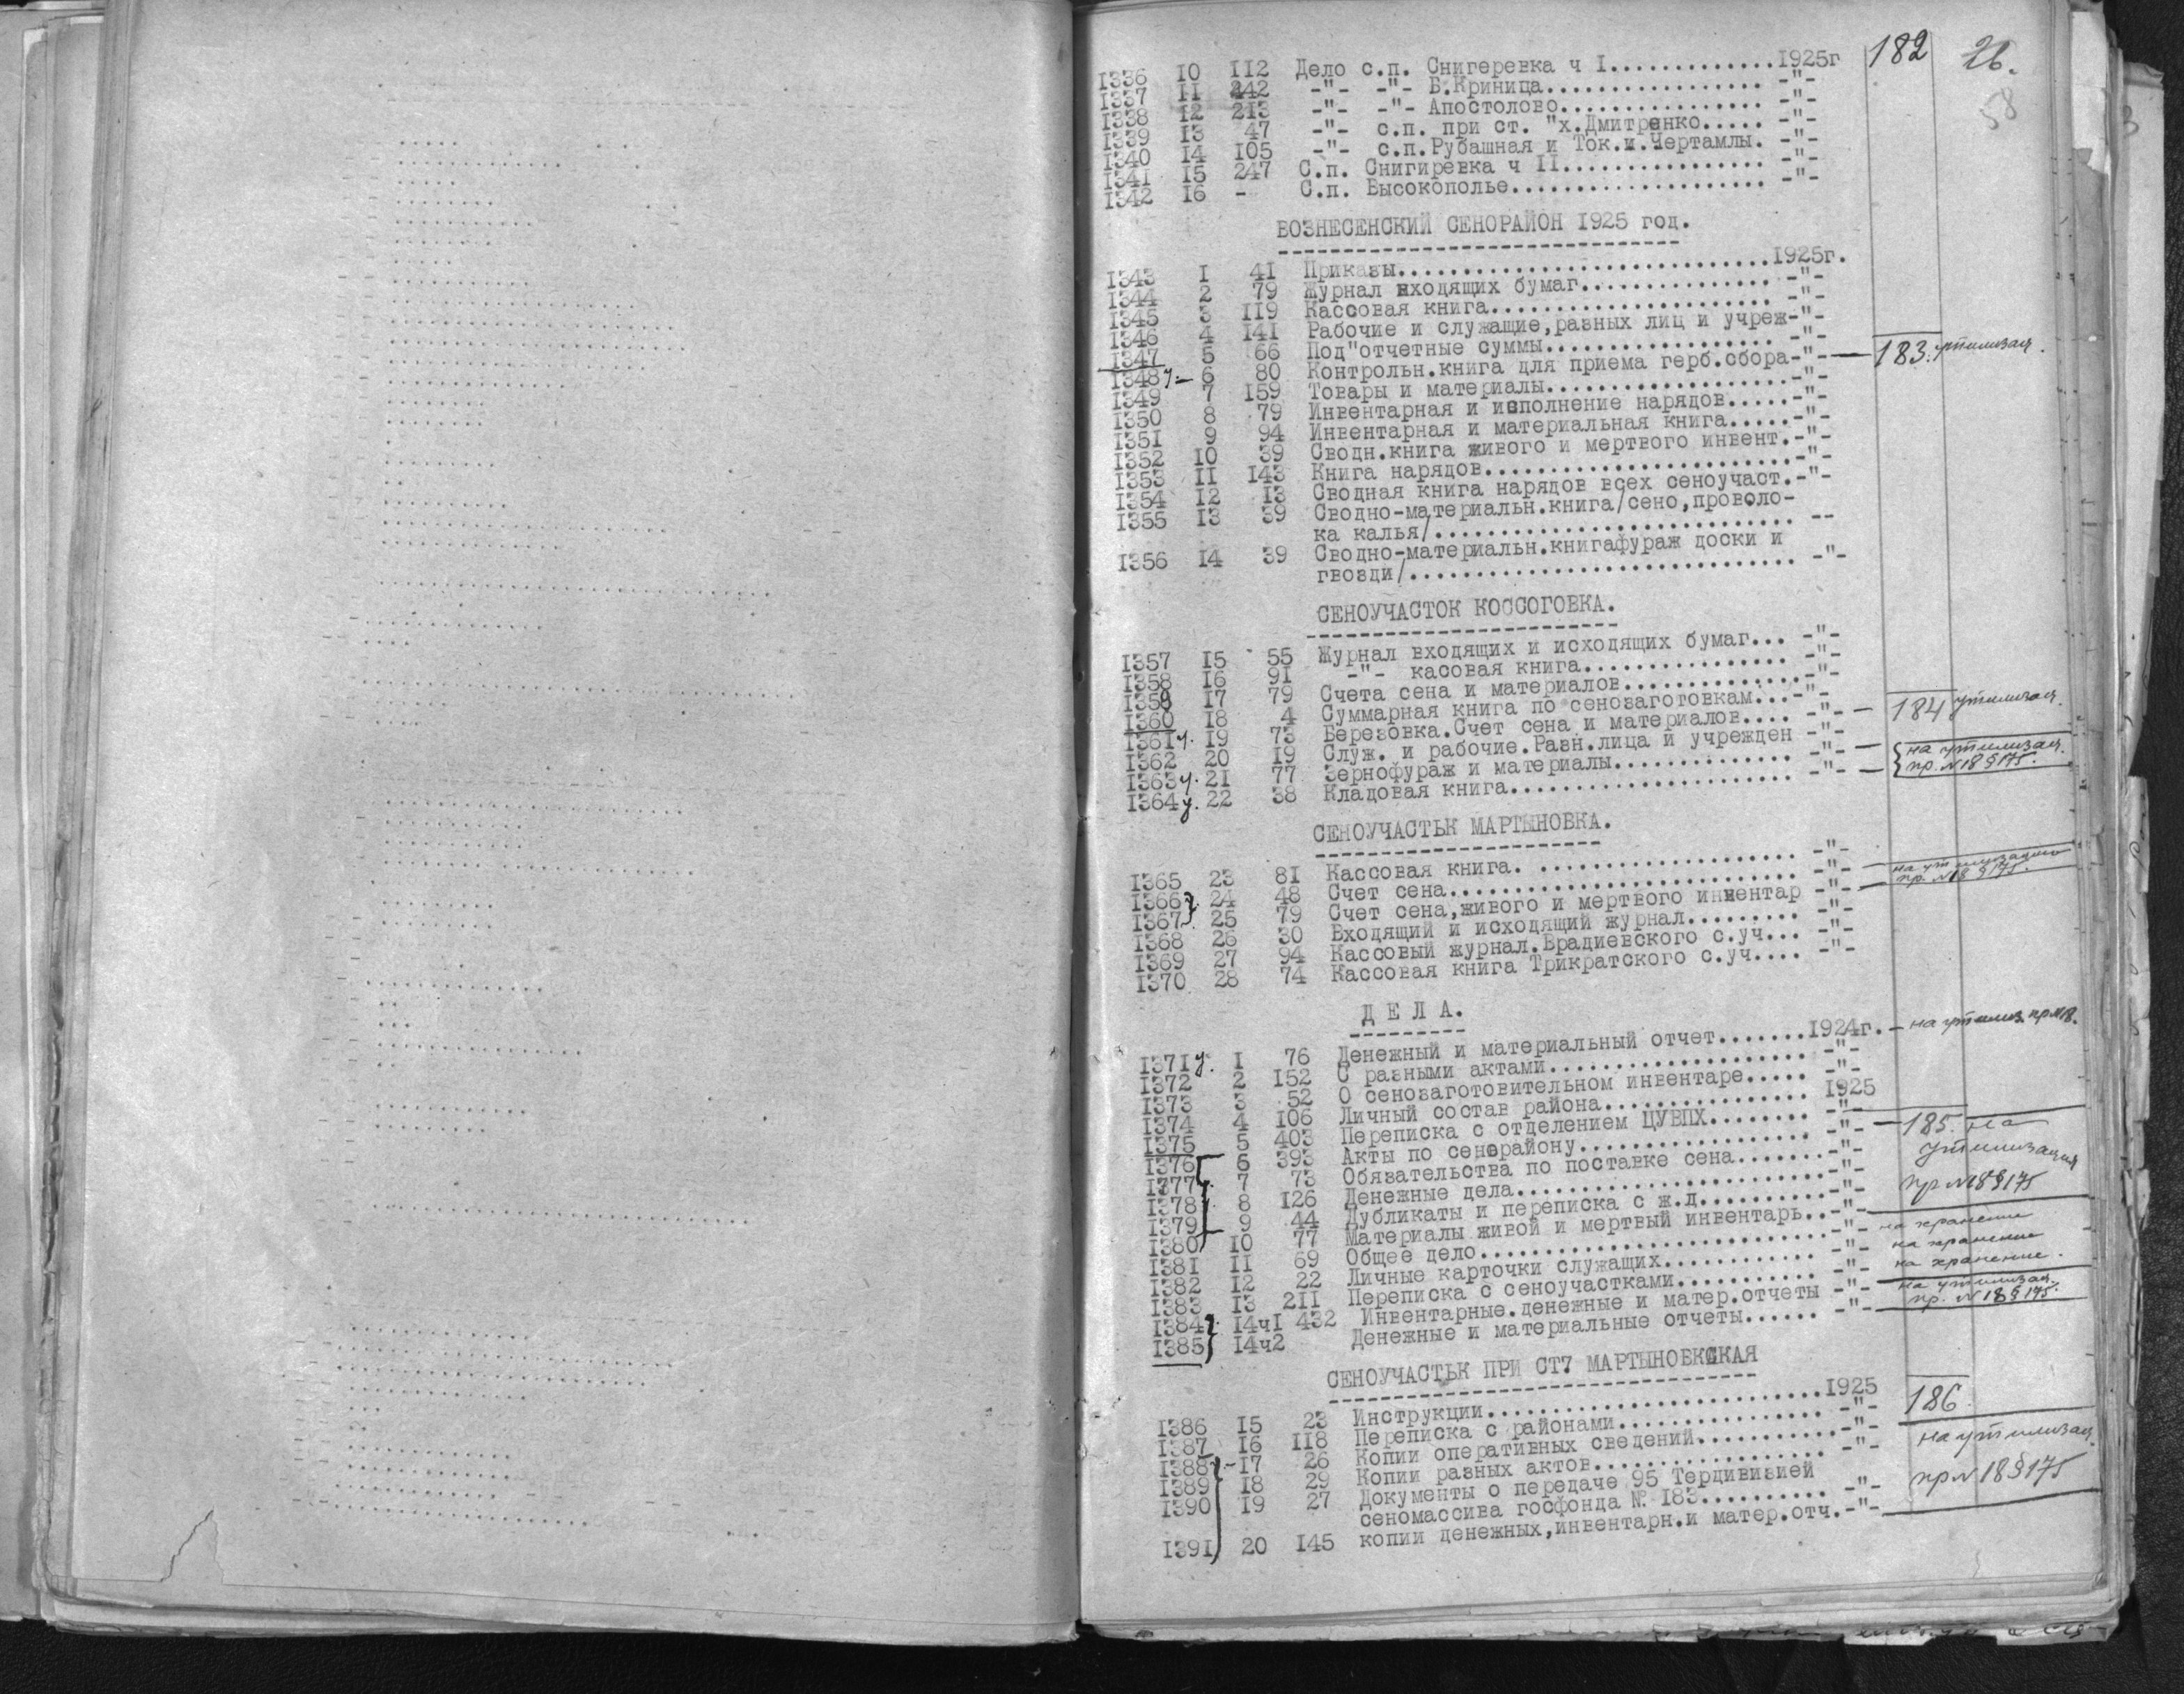 182 26.
58
1336 10 112 Дело с.п. Снигеревка ч I.............1925г
1337 11 242 -"- -"- Б.Криница................. -"-
1338 12 213 -"- -"- Апостолово................ -"-
1339 13 47 -"- с.п. при ст. "х.Дмитренко..... -"-
1340 14 105 -"- с.п.Рубашная и Ток.и.Чертамлы. -"-
1341 15 247 С.п. Снигиревка ч II................ -"-
1342 16 - С.п. Высокополье.................... -"-
ВОЗНЕСЕНСКИЙ СЕНОРАЙОН 1925 год.
1343 1 41 Приказы.............................1925г.
1344 2 79 Журнал входящих бумаг............... -"-
1345 3 119 Кассовая книга...................... -"-
1346 4 141 Рабочие и служащие,разных лиц и учреж-"-
1347 5 66 Под"отчетные суммы.................. -"-
1348 у- 6 80 Контрольн.книга для приема герб.сбора-"- — 183. утилизац.
1349 7 159 Товары и материалы...................-"-
1350 8 79 Инвентарная и исполнение нарядов.....-"-
1351 9 94 Инвентарная и материальная книга.....-"-
1352 10 39 Сводн.книга живого и мертвого инвент.-"-
1353 11 143 Книга нарядов........................-"-
1354 12 13 Сводная книга нарядов всех сеноучаст.-"-
1355 13 39 Сводно-материальн.книга/сено,проволо-
ка калья/............................ --
1356 14 39 Сводно-материальн.книгафураж доски и
гвозди/.............................. -"-
СЕНОУЧАСТОК КОССОГОВКА.
1357 15 55 Журнал входящих и исходящих бумаг... -"-
1358 16 91 -"- касовая книга................ -"-
1359 17 79 Счета сена и материалов..............-"-
1360 18 4 Суммарная книга по сенозаготовкам...-"-
1361 у. 19 73 Березовка.Счет сена и материалов.... -"- — 184 утилизац.
1362 20 19 Служ. и рабочие.Разн.лица и учрежден -"-
1363 у. 21 77 Зернофураж и материалы.............. -"- — {на утилизац.
1364 у. 22 38 Кладовая книга...................... -"- — пр. №18 §175.
СЕНОУЧАСТЬК МАРТЫНОВКА.
1365 23 81 Кассовая книга. .................... -"-
1366 } 24 48 Счет сена........................... -"- — на утилизацию
1367 } 25 79 Счет сена,живого и мертвого инвентар -"- — пр. №18 §175.
1368 26 30 Входящий и исходящий журнал......... -"-
1369 27 94 Кассовый журнал.Врадиевского с.уч... -"-
1370 28 74 Кассовая книга Трикратского с.уч.... -"-
Д Е Л А.
1371 у. 1 76 Денежный и материальный отчет.......1924г. – на утилиз. пр №18.
1372 2 152 С разными актами.................... -"-
1373 3 52 О сенозаготовительном инвентаре..... -"-
1374 4 106 Личный состав района................ 1925
1375 5 403 Переписка с отделением ЦУВПХ........ -"-
1376 6 393 Акты по сенорайону.................. -"- — 185. на
1377 у. 7 73 Обязательства по поставке сена.......-"- утилизация
1378 8 126 Денежные дела........................-"- пр №18 §175
1379 9 44 Дубликаты и переписка с ж.д..........-"-
1380 10 77 Материалы живой и мертвый инвентарь..-"-
1381 11 69 Общее дело...........................-"- на хранение
1382 12 22 Личные карточки служащих............ -"- на хранение
1383 13 211 Переписка с сеноучастками........... -"- на хранение.
1384 } 14ч1 432 Инвентарные.денежные и матер.отчеты -"- на утилизац.
1385 } 14ч2 Денежные и материальные отчеты...... -"- пр. №18 § 175.
СЕНОУЧАСТЬК ПРИ СТ7 МАРТЫНОВКСКАЯ
1386 15 23 Инструкции..........................1925 186.
1387 16 118 Переписка с районами................ -"-
1388 17 26 Копии оперативных сведений...........-"- на утилизац.
1389 18 29 Копии разных актов.................. -"- пр № 18 §175
1390 19 27 Документы о передаче 95 Тердивизией
сеномассива госфонда № 183.......... -"-
1391 20 145 копии денежных,инвентарн.и матер.отч.-"-